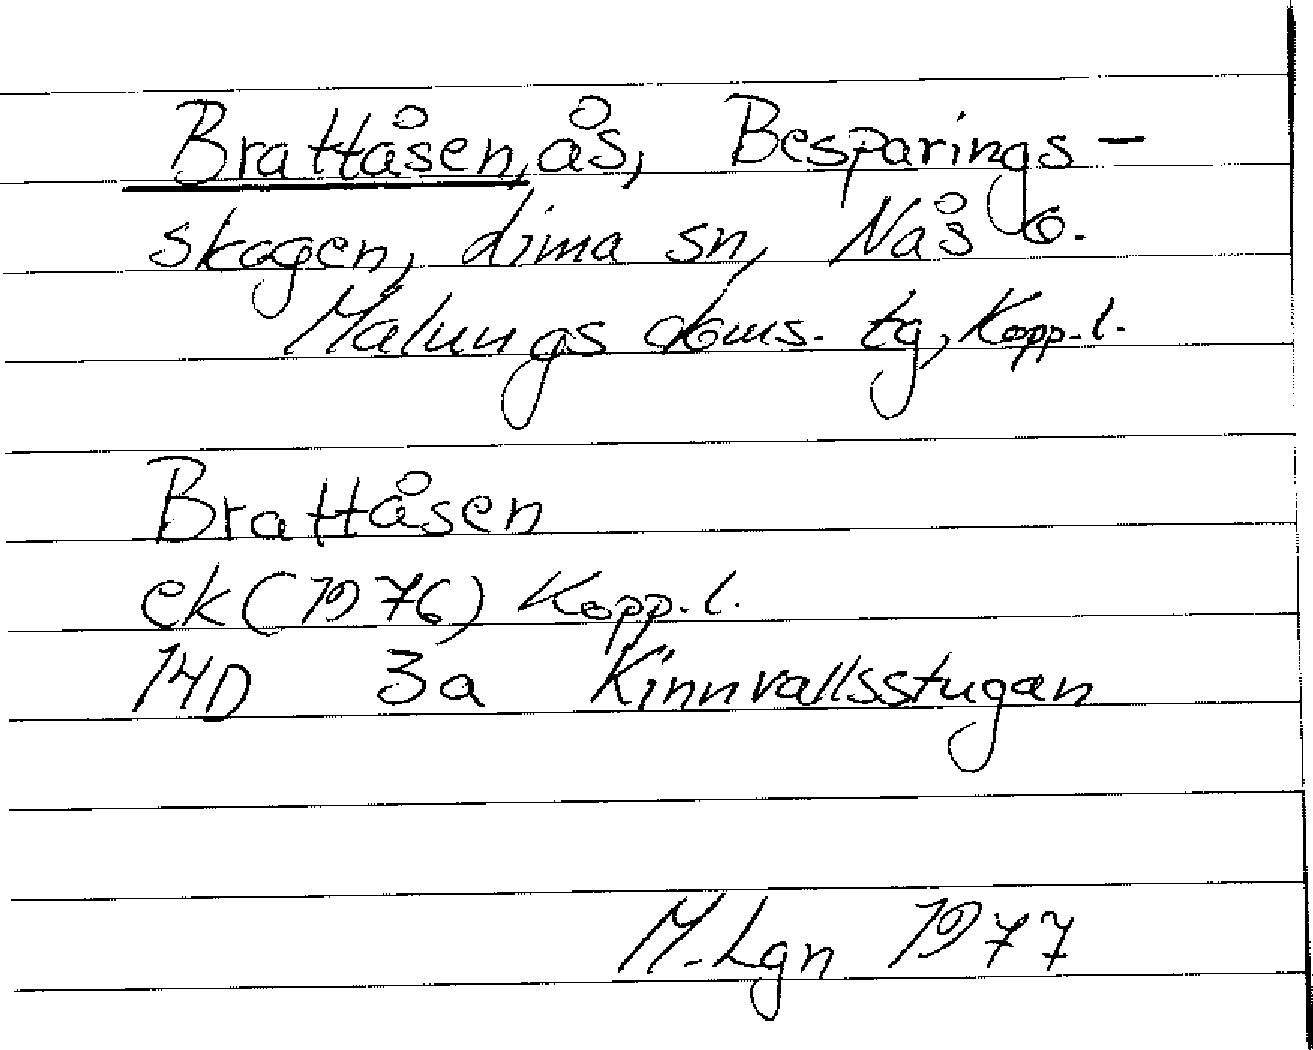 Brattåsen, ås, Besparings-
skogen, Lima sn, Nås o.
Malungs doms. tg, Kopp. l.
Brattåsen
ek (1976) Kopp. l.
14D 3a Kinnvallsstugan
M. Lgn 1977